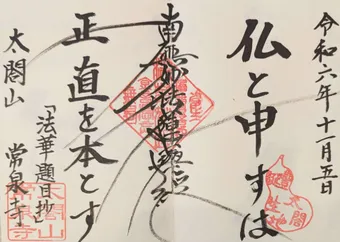 令和六年十一月五日
仏と申すは
南無妙法蓮華経
正直を本とす
「法華題目抄
太閤山 常泉寺
太閤山
常泉寺